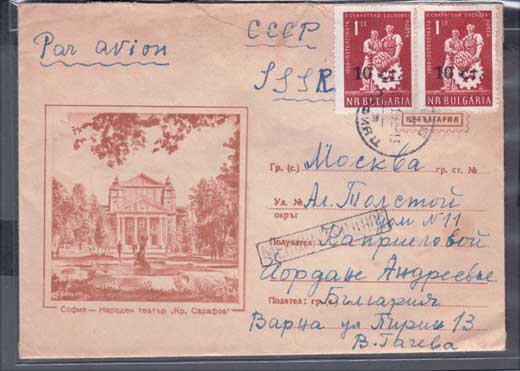 Par avion
СССР
SSSR
1 ЛВ
1 ЛВ
10 ст.
10 ст.
NR BULGARIA
NR BULGARIA
НР БЪЛГАРИЯ
Гр. (с.) Москва гр. ст. №
Ул. № Ал. Толстой
окръг дом № 11
Получател:
Йордане Андреевне
Подател: гр. България
Варна ул Пирин 13
В. Гачева
София — Народен театър „Кр. Сарафов"